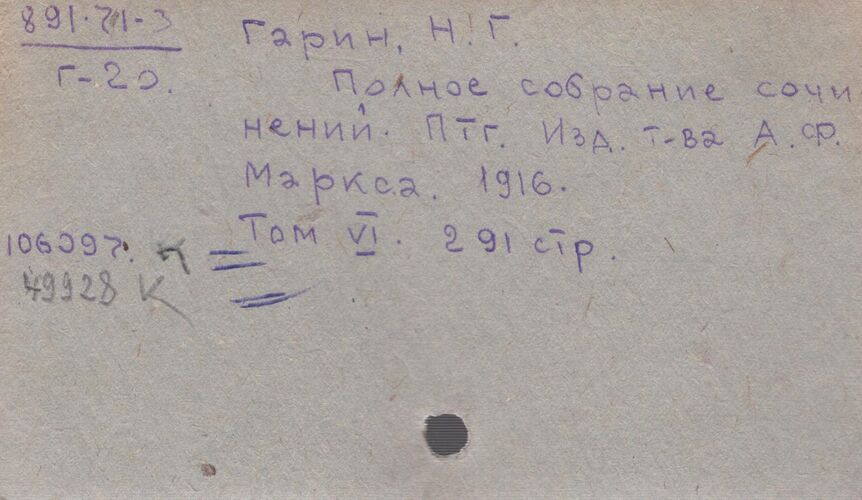 891.71-3
Г-20.
Гарин, Н. Г.
Полное собрание сочи
нений. Птг. Изд. т-ва А. Ф.
Маркса. 1916.
Том VI. 291 стр.
106097. п
49928 К